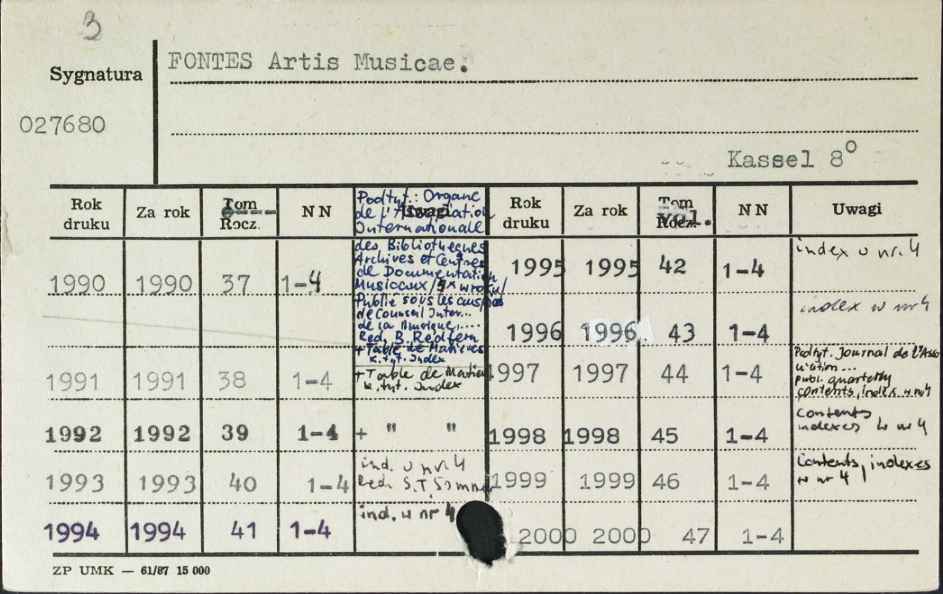 3
Sygnatura
FONTES Artis Musicae.
027680
Kassel 8°
Rok druku
Za rok
Tom
Rocz.
NN
Podtyt.: Organe
de l'Association
Internationale
Uwagi
Rok druku
Za rok
Tom
Rocz.
vol.
NN
Uwagi
des Bibliotheques
Archives et Centres
de Documentation
Musicaux
Publié sous les auspices
de
de la Musique,....
Red. B. Redfern
+ Table de Matieres
k. tyt. Index
1990 1990 37 1-4
1991 1991 38 1-4 + Table de Matieres
k. tyt. Index
1992 1992 39 1-4 + " "
1993 1993 40 1-4 ind. w nr 4
Red. S.T.
1994 1994 41 1-4 ind. w nr 4
1995 1995 42 1-4 index w nr. 4
1996 1996 43 1-4 index w nr 4
1997 1997 44 1-4 Podtyt. Journal de l'Asso
ciation...
publ. quarterly
contents, index w nr 4
1998 1998 45 1-4 Contents
indexes w nr 4
1999 1999 46 1-4 Contents, indexes
w nr 4
2000 2000 47 1-4
ZP UMK — 61/87 15 000